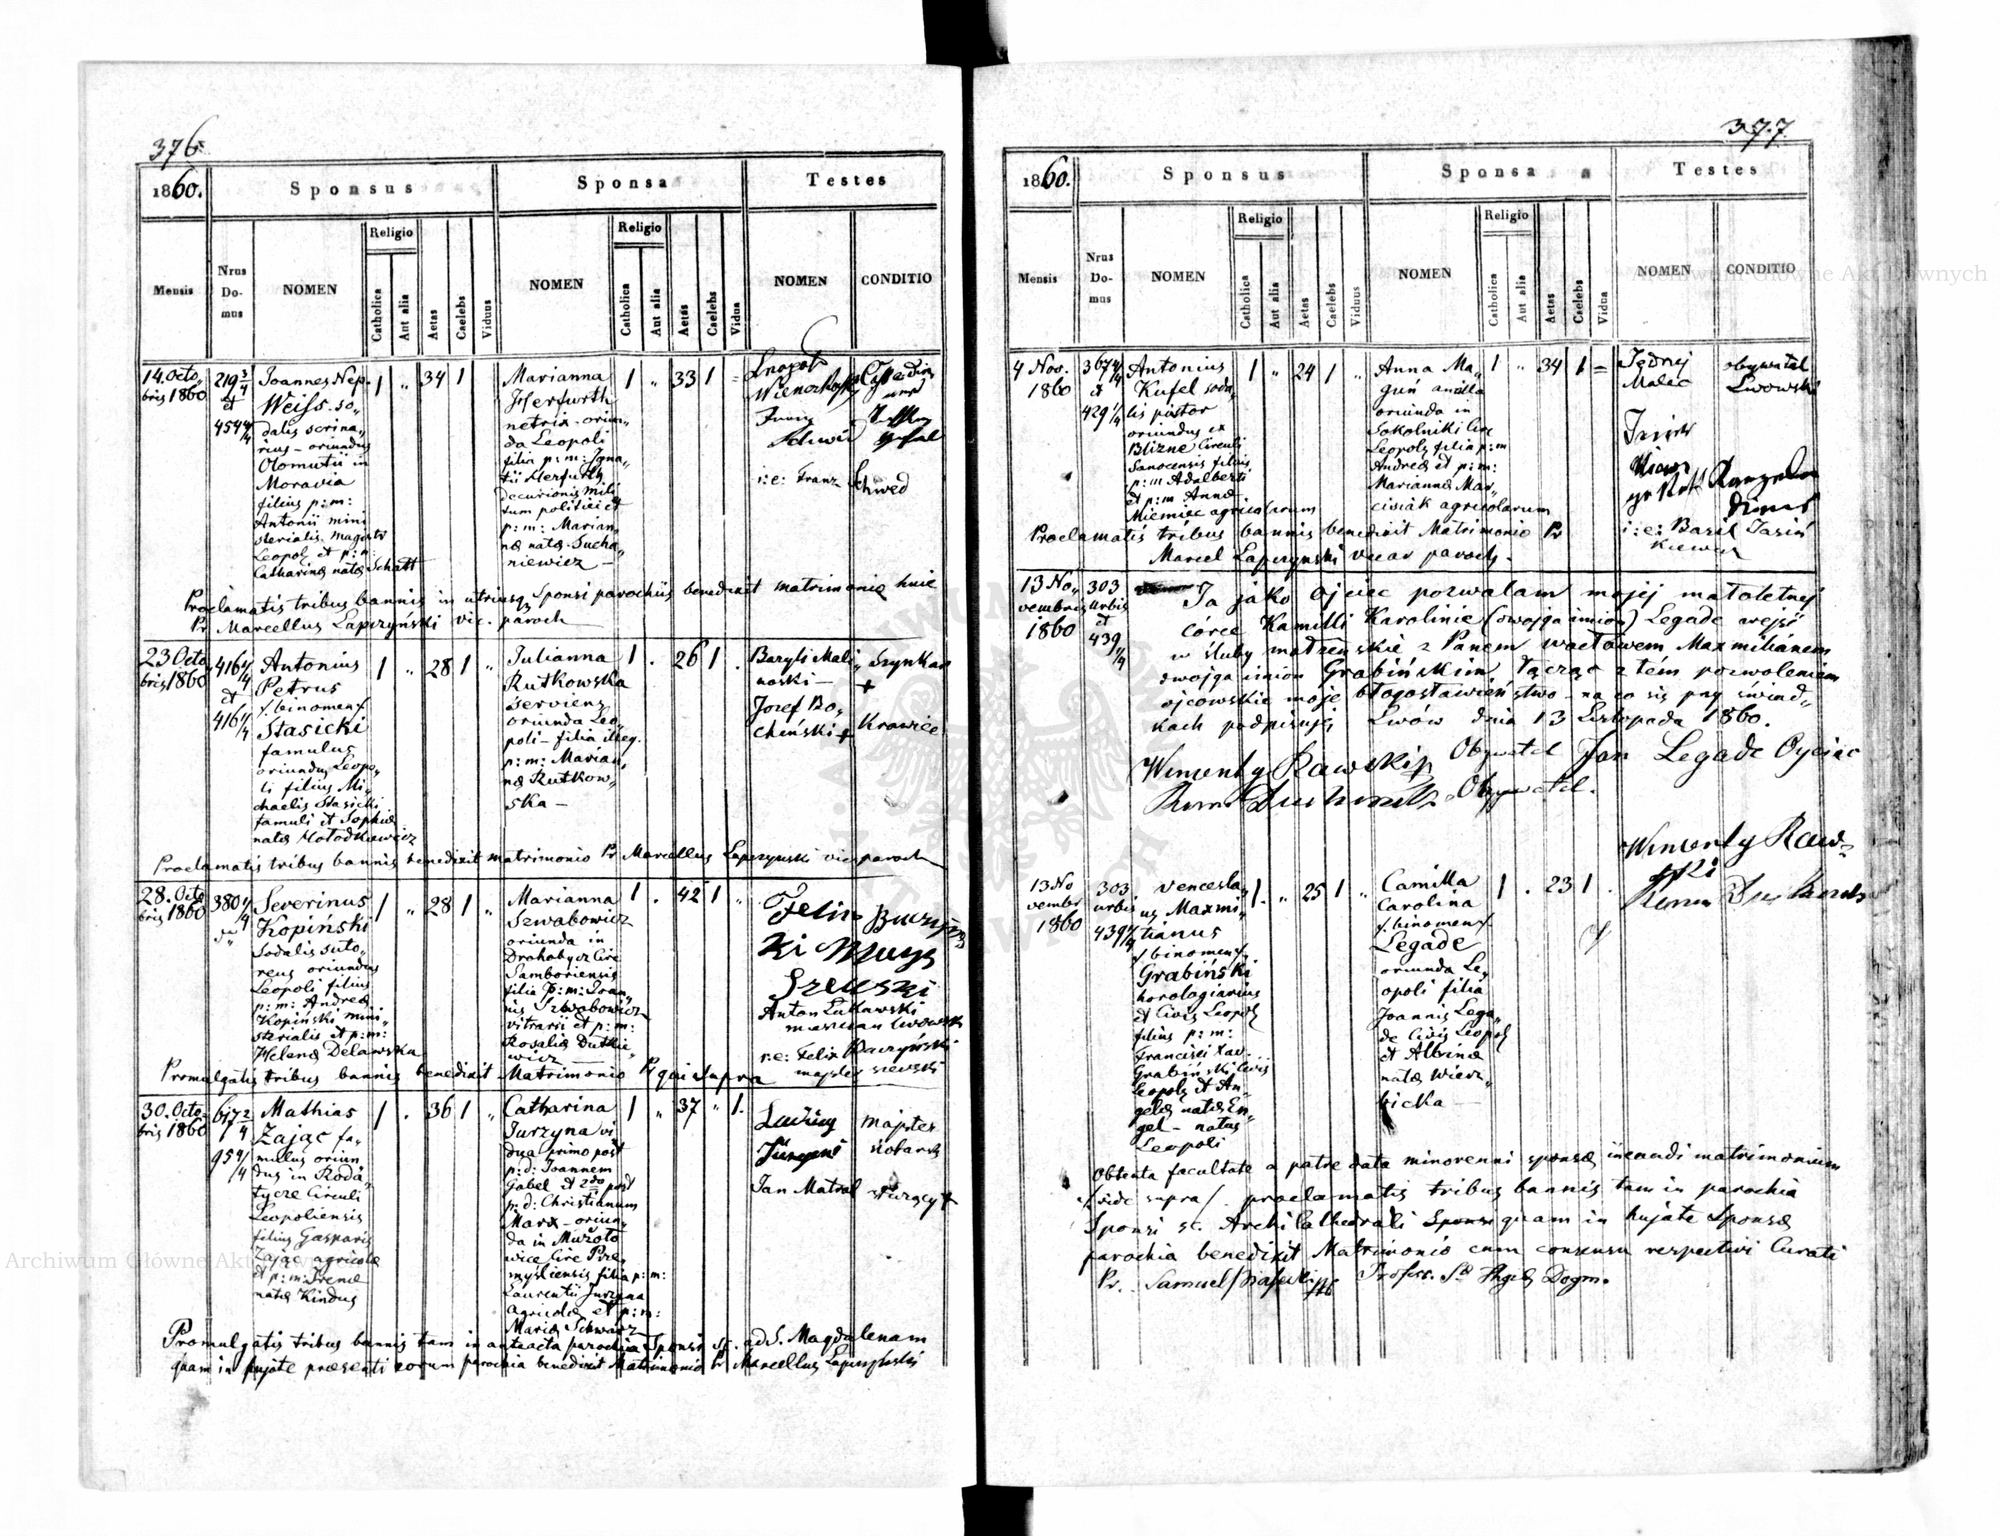 376
1860.
Sponsus
Sponsa
Testes
Mensis
Nrus Domus
NOMEN
Religio
Catholica
Aut alia
Aetas
Caelebs
Viduus
NOMEN
Religio
Catholica
Aut alia
Aetas
Caelebs
Vidua
NOMEN
CONDITIO
14. Octo„
bris 1860
219 3/4
et
454 4/4
Joannes Nep.
Weiss. so„
dalis scrina„
rius – oriundus
Olomutii in
Moravia
filius p: m:
Antonii mini
sterialis magistr
Leopol et p: m:
Catharinæ natæ Schatt
1 „ 34 1
Marianna
netrix – oriun„
da Leopoli
filia p: m: Igna„
tii Herfurth
Decurionis mili
tum politiei et
p: m: Marian„
næ natæ Sucha„
niewicz –
1 „ 33 1
Leopold
Franz
Schwed
i: e: Franz Schwed
Proclamatis tribus bannis in utriusq Sponsi parochiis benedixit matrimonio huic
Pr Marcellus Łapczyński vic. paroch
23 Octo
bris 1860
416 4/4
et
416 4/4
Antonius
Petrus
/. binomen /.
Stasicki
famulus
oriundus Leopo„
li filius Mi„
chaelis Stasicki
famuli et Sophiæ
natæ Hołodkiewicz
1 „ 28 1 „
Julianna
Rutkowska
serviens
oriunda Leo„
poli – filia illeg.
p: m: Marian„
næ Rutkow„
ska –
1 . 26 1 .
Baryli Mali„
noski – +
Szynkar
Jozef Bo„
cheński +
Krawiec
Proclamatis tribus bannis benedixit matrimonio Pr Marcellus Łapczyński vic paroch
28. Octo
bris 1860
380 4/4
Severinus
Kopiński
Sodalis suto„
reus oriundus
Leopoli filius
p: m: Andreæ
Kopiński mini„
sterialis et p: m:
Helenæ Delawska
1 „ 28 1 „
Marianna
Szwabowicz
oriunda in
Drohobycz Circ
Samboriensis
filia p: m: Joan„
nis Szwabowicz
vitrarii et p: m:
Rosaliæ Dutkie„
wicz –
1 . 42 1 „
Felix Buczyńs
ki Mays
Szewski
Anton Lukawski
i: e: Felix Buczyński
majster szewski
Promulgatis tribus bannis benedixit Matrimonio Pr qui supra
30. Octo„
bris 1860
617 2/4
95 4/4
Mathias
Zając fa„
mulus oriun
dus in Roda„
tycze Circuli
Leopoliensis
filius Gasparis
Zając agricolæ
et p: m: Irenæ
natæ Kindus
1 . 36 1 „
Catharina
Jurzyna vi
dua primo post
p: d: Joannem
Gabel et 2do post
p: d: Christianum
Marx – oriun„
da in Mużyło
wice Circ Prze„
mysliensis filia p: m:
Laurentii Jurzyna
agricolæ et p: m:
Mariæ Schwarz
1 „ 37 „ 1.
Ludwig
majster
stolarsk
Jan Matral
Promulgatis tribus bannis tam in anteacta parochia Sponsi sc. ad S. Magdalenam
quam in hujate præsenti eorum parochia benedixit Matrimonio Pr Marcellus Łapczyński
377.
1860.
Sponsus
Sponsa
Testes
Mensis
Nrus Domus
NOMEN
Religio
Catholica
Aut alia
Aetas
Caelebs
Viduus
NOMEN
Religio
Catholica
Aut alia
Aetas
Caelebs
Vidua
NOMEN
CONDITIO
4 Nov.
1860
367 4/4
et
429 1/4
Antonius
Kufel soda„
lis pistor
oriundus ex
Blizne Circuli
Sanocensis filius
p: m Adalberti
et p: m Annæ
Miemiec agricolarum
1 „ 24 1 „
Anna Ma„
guń ancilla
oriunda in
Sokolniki Circ
Leopol filia p: m
Andreæ et p: m:
Mariannæ Mar„
cisiak agricolarum
1 „ 34 1
Jędrzej
Malec
obywatel
Lwowski
i: e: Bazil Jasiń
kiewicz
Proclamatis tribus bannis benedixit Matrimonio Pr
Marcel Łapczynski vicar paroch.
13 No„
vembris
1860
303
urbis
et
439 4/4
Ja jako ojciec pozwalam mojej małoletnej
córce Kamilli Karolinie (dwojga imion) Legade wejść
w śluby małżeńskie z Panem wacławem Maxmiliánem
dwojga imion Grabińskim, łącząc z tém pozwoleniem
ojcowskie moje błogosławieństwo – na co się przy świad„
kach podpisuję, Lwów dnia 13 Listopada 1860.
Wincenty Rawski Obywatel Jan Legade Oyciec
Obywatel.
13 No
vembr
1860
303
urbis
439 4/4
Vencesla„
us Maxmi„
lianus
/. binomen /.
Grabiński
horologiarius
et Civis Leopol
filius p: m:
Francisci Xav.
Grabiński Civis
Leopol et An„
gelæ natæ En„
gel – natus
Leopoli
1. „ 25 1 „
Camilla
Carolina
/. binomen /.
Legade
oriunda Le„
opoli filia
Joannis Lega„
de Civis Leopol
et Albinæ
natæ Wierz„
bicka –
1 . 23 1 .
Wincenty Raw„
ski
Obtenta facultate a patre data minorenni sponsæ ineundi matrimonium
/vide supra/ proclamatis tribus bannis tam in parochia
Sponsi sc. Archi Cathedrali Sponsi quam in hujate Sponsæ
parochia benedixit Matrimonio cum consensu respectivi Curati
Pr. Samuel Professs. Dogm.
Archiwum Główne Akt Dawnych
Archiwum Główne Akt Dawnych